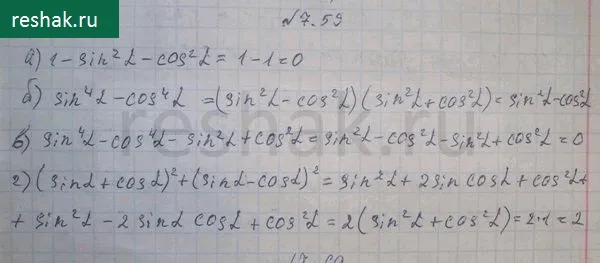 reshak.ru
№7.59
а) 1 - sin²α - cos²α = 1 - 1 = 0
б) sin⁴α - cos⁴α = (sin²α - cos²α)(sin²α + cos²α) = sin²α - cos²α
в) sin⁴α - cos⁴α - sin²α + cos²α = sin²α - cos²α - sin²α + cos²α = 0
г) (sinα + cosα)² + (sinα - cosα)² = sin²α + 2sin cosα + cos²α +
+ sin²α - 2 sinα cosα + cos²α = 2(sin²α + cos²α) = 2·1 = 2
reshak.ru